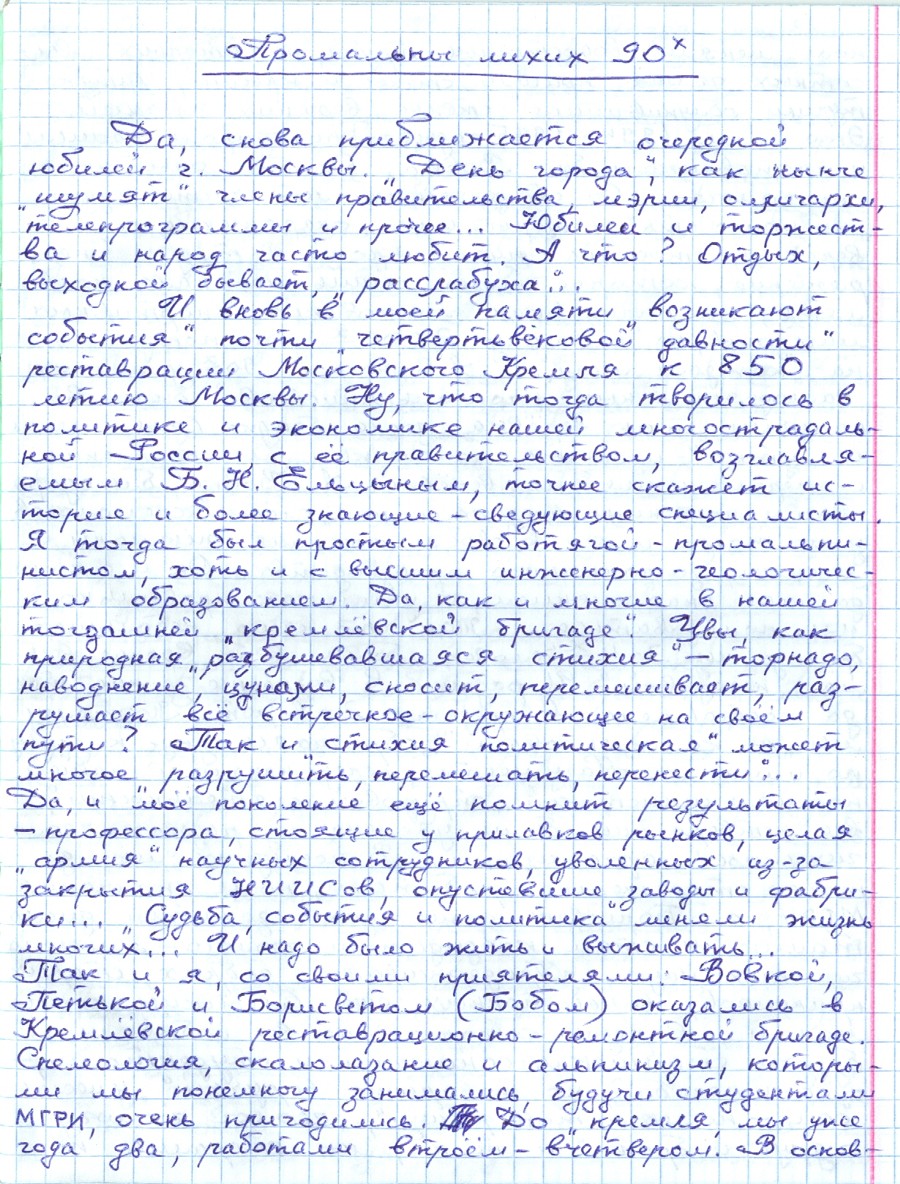 Промальны лихих 90х
Да, снова приближается очередной
юбилей г. Москвы. „День города", как нынче
„шумят" члены правительства, мэрии, олигархи,
телепрограммы и прочее... Юбилеи и торжест-
ва и народ часто любит. А что? Отдых,
выходной бывает, „расслабуха"...
И вновь в моей памяти „возникают
события" почти „четвертьвековой давности"
реставрации Московского Кремля к 850
летию Москвы. Ну, что тогда творилось в
политике и экономике нашей многострадаль-
ной России с её правительством, возглавля-
емым Б. Н. Ельцыным, точнее скажет ис-
тория и более знающие-сведующие специалисты.
Я тогда был простым работягой-промальпи-
нистом, хоть и с высшим инженерно-геологичес-
ким образованием. Да, как и многие в нашей
тогдашней „кремлёвской бригаде" Увы, как
природная „разбушевавшаяся стихия" – торнадо,
наводнение, цунами, сносит, перемешивает, раз-
рушает всё встречное-окружающее на своём
пути? „Так и стихия политическая" может
многое „разрушить, перемешать, перенести"...
Да, и моё поколение ещё помнит результаты
– профессора, стоящие у прилавков рынков, целая
„армия" научных сотрудников, уволенных из-за
закрытия НИИСов, опустевшие заводы и фабри-
ки... „Судьба, события и политика" меняли жизнь
многих... И надо было жить и выживать...
Так и я, со своими приятелями: Вовкой,
Петькой и Борисветом (Бобом) оказались в
Кремлёвской реставрационно-ремонтной бригаде.
Спелеология, скалолазание и альпинизм, которы-
ми мы понемногу занимались, будучи студентами
МГРИ, очень пригодились. До „кремля" мы уже
года два, работали втроём-вчетвером. В основ-